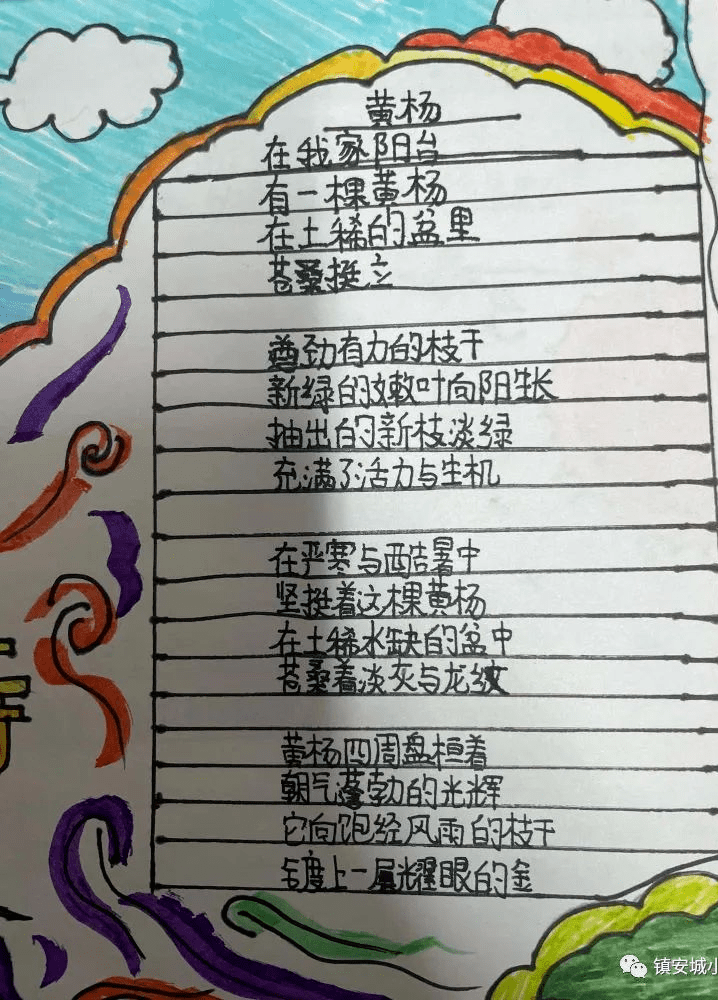 黄杨
在我家阳台
有一棵黄杨
在土稀的盆里
苍桑挺立
尊劲有力的枝干
新绿的嫩叶向阳生长
抽出的新枝淡绿
充满了活力与生机
在严寒与酷暑中
坚挺着这棵黄杨
在土稀水缺的盆中
苍桑着淡灰与龙纹
黄杨四周盘桓着
朝气蓬勃的光辉
它向饱经风雨的枝干
镀上一层耀眼的金
镇安城小